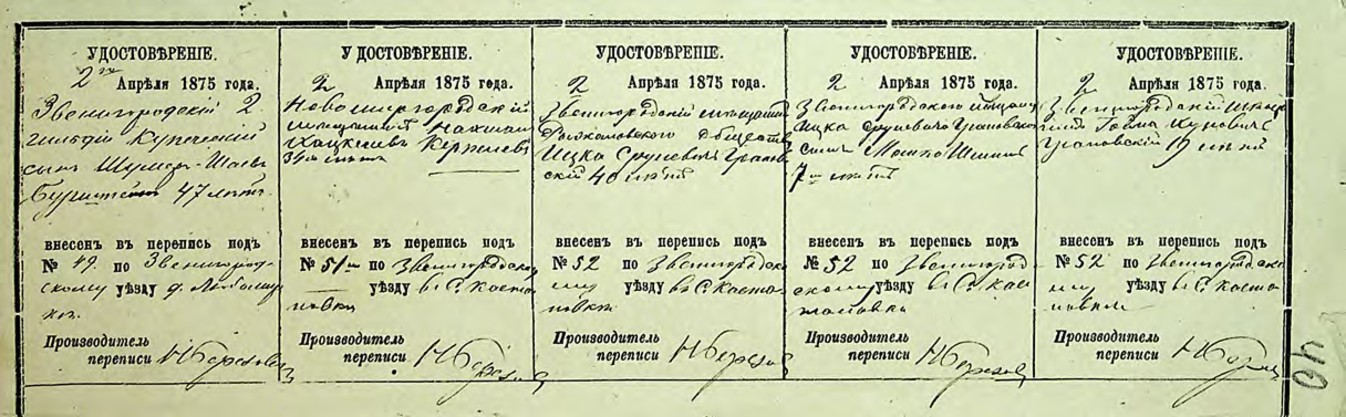 УДОСТОВѢРЕНІЕ.
2го Апрѣля 1875 года.
Звенигородскій 2
гильдіи Купеческій
сынъ Шулимъ-Шаевъ
47 лѣтъ.
внесенъ въ перепись подъ
№ 49. по Звенигород-
скому уѣзду д.
Производитель
переписи Н Березов
УДОСТОВѢРЕНІЕ.
2 Апрѣля 1875 года.
Новомиргородскій
мѣщанинъ Нахман
34 лѣтъ
внесенъ въ перепись подъ
№ 51 по Звенигородско
уѣзду въ С. Каста
новки
Производитель
переписи Н Березов
УДОСТОВѢРЕНІЕ.
2 Апрѣля 1875 года.
Звенигородскій мѣщанин
Рыжановского обществ
Ицка Сруневичъ Гранов
скій 40 лѣтъ
внесенъ въ перепись подъ
№ 52 по Звенигородско
му уѣзду въ С. Каста
новки
Производитель
переписи Н Березов
УДОСТОВѢРЕНІЕ.
2 Апрѣля 1875 года.
Звенигородского мѣщан
Ицка Сруневича Грановско
сынъ Мошко
7 лѣтъ
внесенъ въ перепись подъ
№ 52 по Звенигород
скому уѣзду въ С. Кас
тановки
Производитель
переписи Н Березов
УДОСТОВѢРЕНІЕ.
2 Апрѣля 1875 года.
Звенигородскій
Грановскій 19 лѣтъ
внесенъ въ перепись подъ
№ 52 по Звенигородско
му уѣзду въ С. Каста
новки
Производитель
переписи Н
40